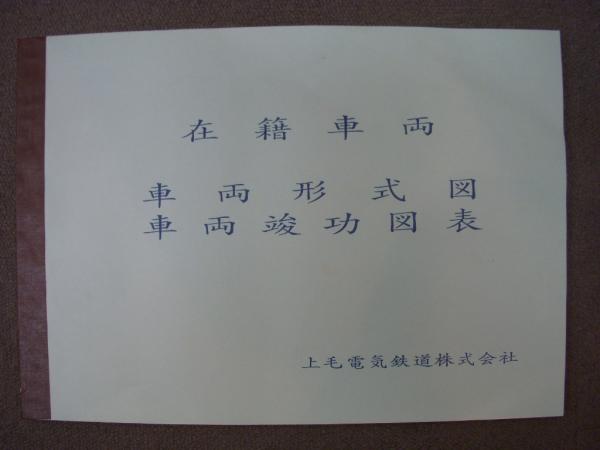 在籍車両
車両形式図
車両竣功図表
上毛電気鉄道株式会社